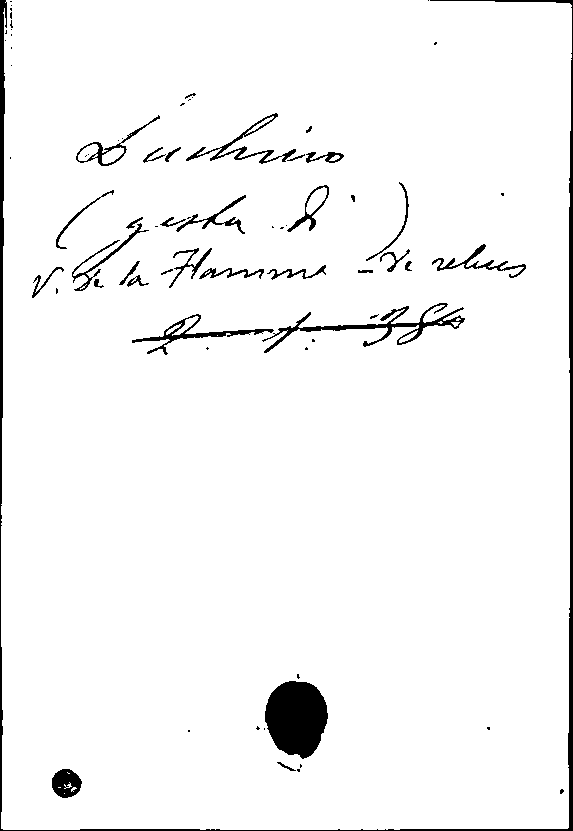 Luchino
(gesta di)
V. De la Flamma - De rebus
2. 1. 38